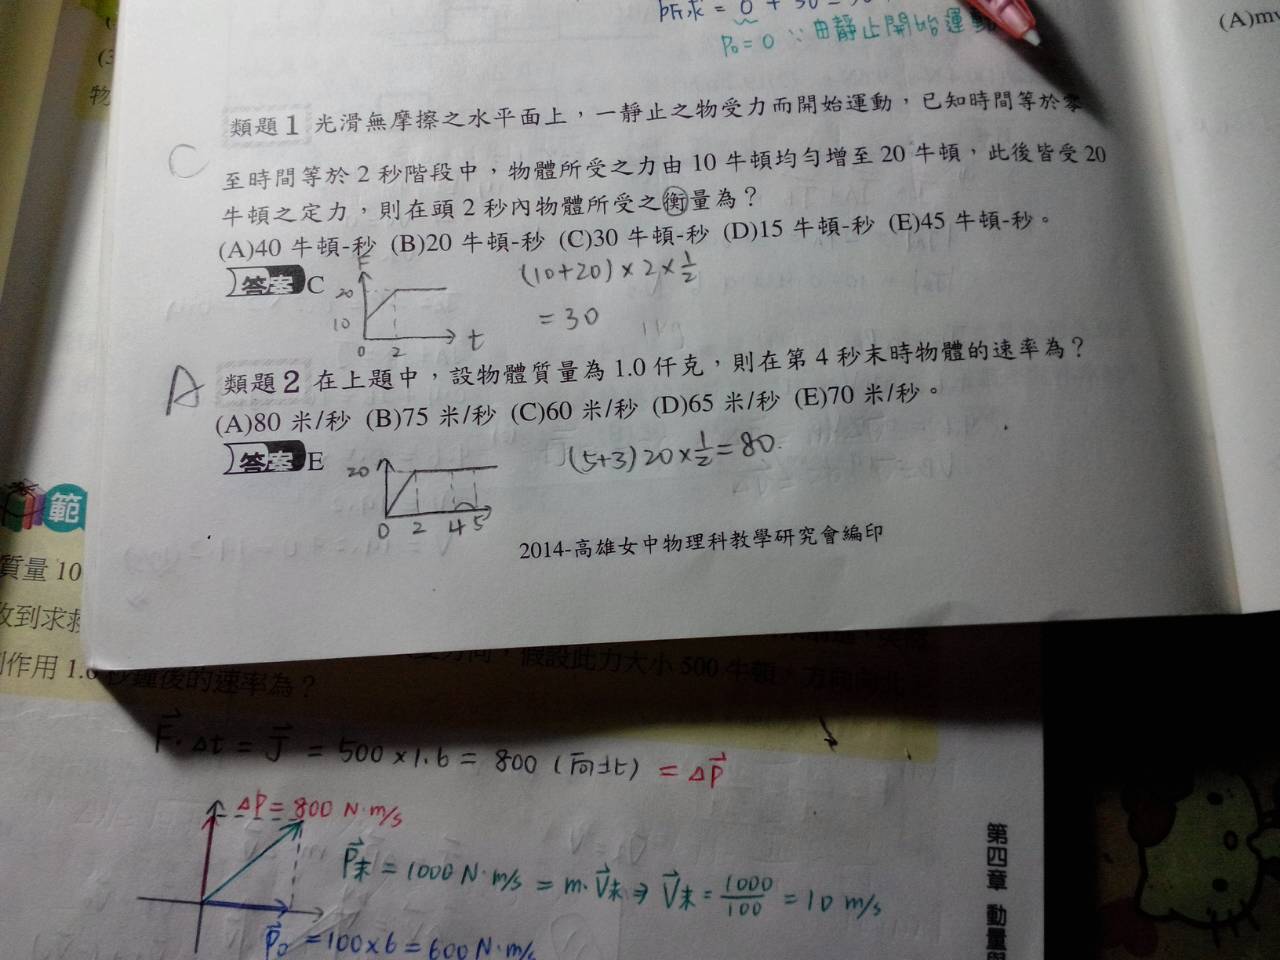 所求 = 0 + 30
P₀ = 0 ∵ 由靜止開始運動
(A)mv
物
C
類題 1 光滑無摩擦之水平面上，一靜止之物受力而開始運動，已知時間等於零
至時間等於 2 秒階段中，物體所受之力由 10 牛頓均勻增至 20 牛頓，此後皆受 20
牛頓之定力，則在頭 2 秒內物體所受之衝量為？
(A)40 牛頓-秒 (B)20 牛頓-秒 (C)30 牛頓-秒 (D)15 牛頓-秒 (E)45 牛頓-秒。
答案 C
F
20
10
0 2 t
(10+20) × 2 × 1/2
= 30
A
類題 2 在上題中，設物體質量為 1.0 仟克，則在第 4 秒末時物體的速率為？
(A)80 米/秒 (B)75 米/秒 (C)60 米/秒 (D)65 米/秒 (E)70 米/秒。
答案 E
20
0 2 4 5
(5+3) 20 × 1/2 = 80
2014-高雄女中物理科教學研究會編印
範
質量 10
收到求救
假設此力大小 500 牛頓，方向向北
作用 1.6 秒鐘後的速率為？
F⃗·Δt = J⃗ = 500 × 1.6 = 800 (向北) = ΔP⃗
ΔP = 800 N·m/s
P⃗末 = 1000 N·m/s = m·V⃗末 ⇒ V⃗末 = 1000/100 = 10 m/s
P⃗₀ = 100×6 = 600 N·m/s
第四章 動量與